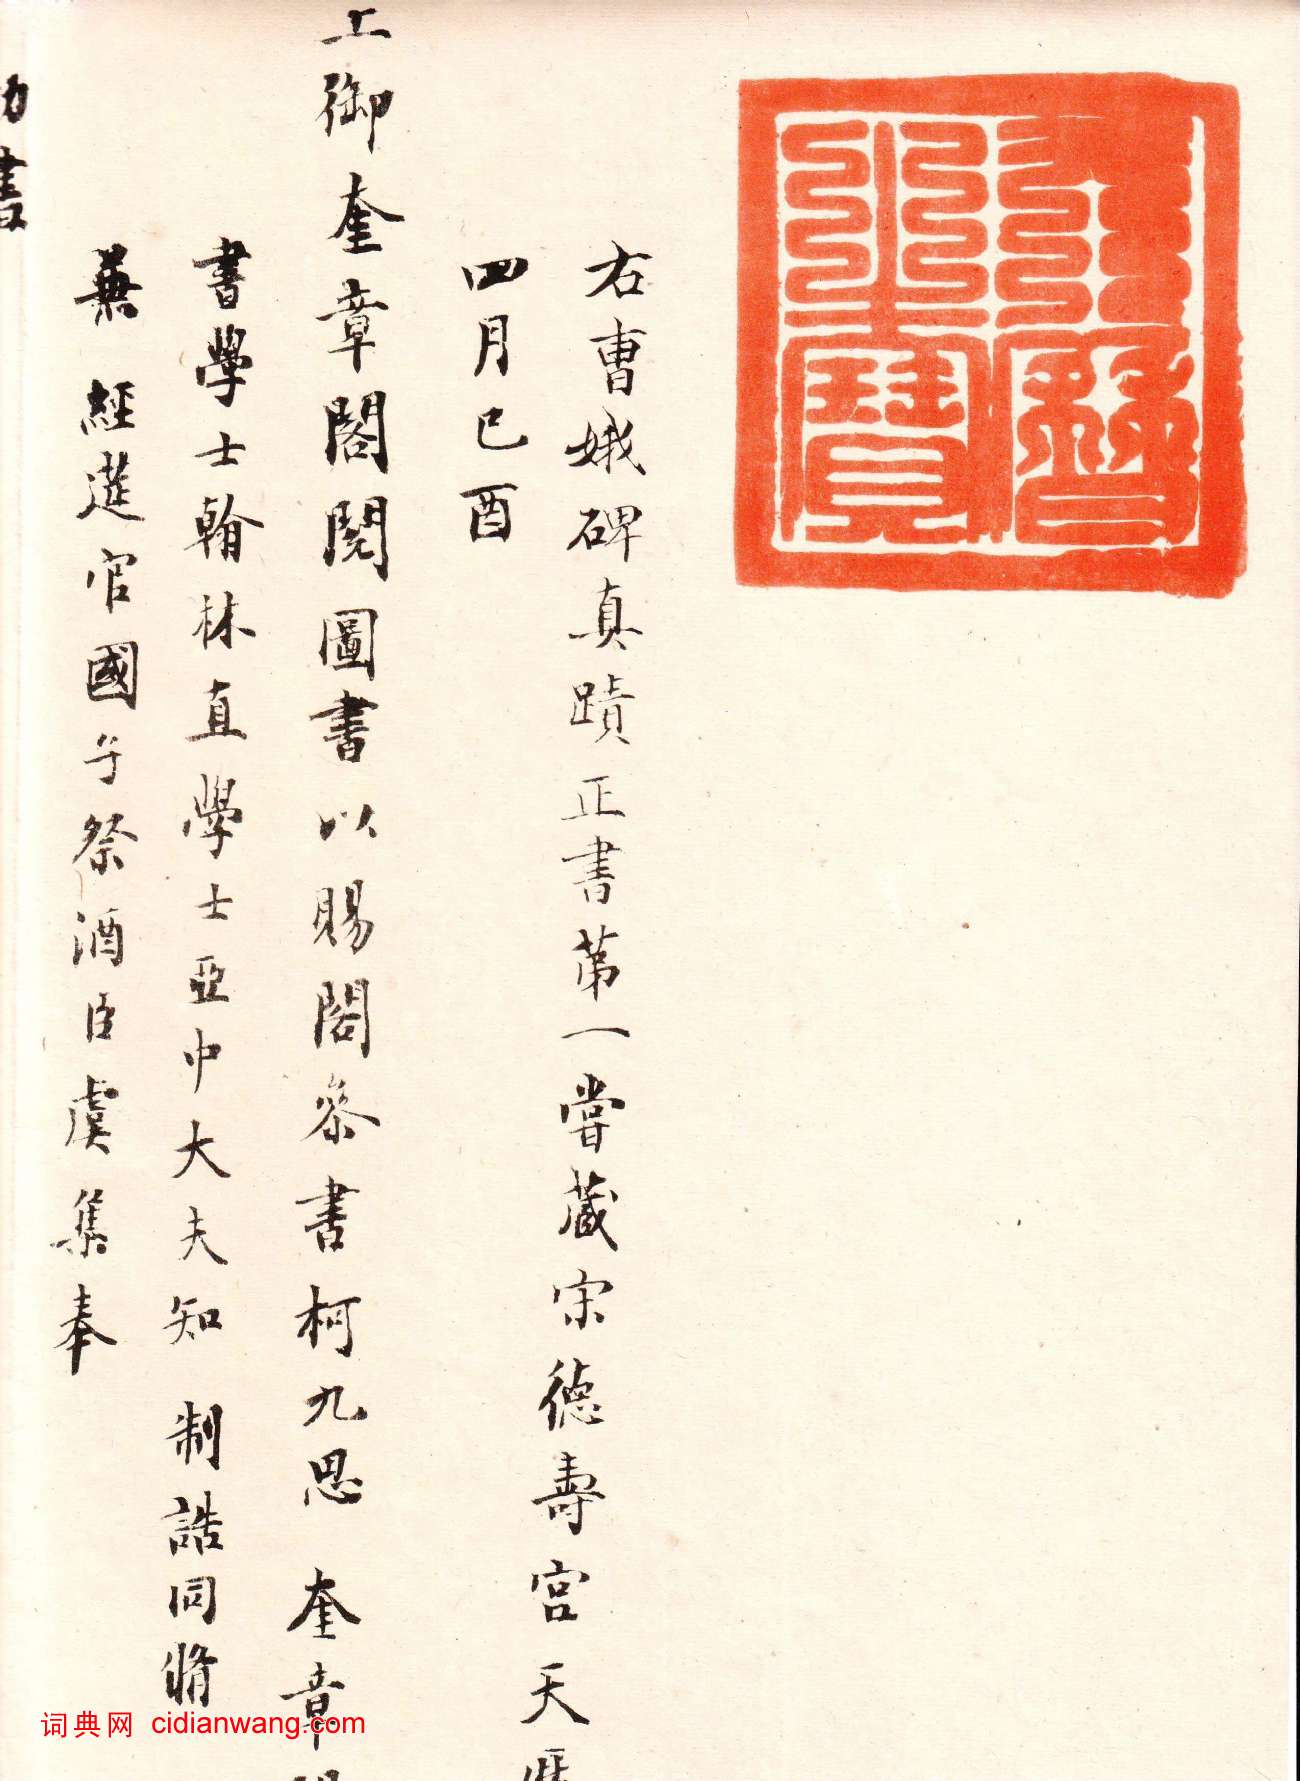 右曹娥碑真蹟正書第一嘗藏宋德壽宮天曆
四月己酉
上御奎章閣閱圖書以賜閣叅書柯九思 奎章閣
書學士翰林直學士亞中大夫知 制誥同脩
兼 經筵官國子祭酒臣虞集奉
書
詞典网 cidianwang.com